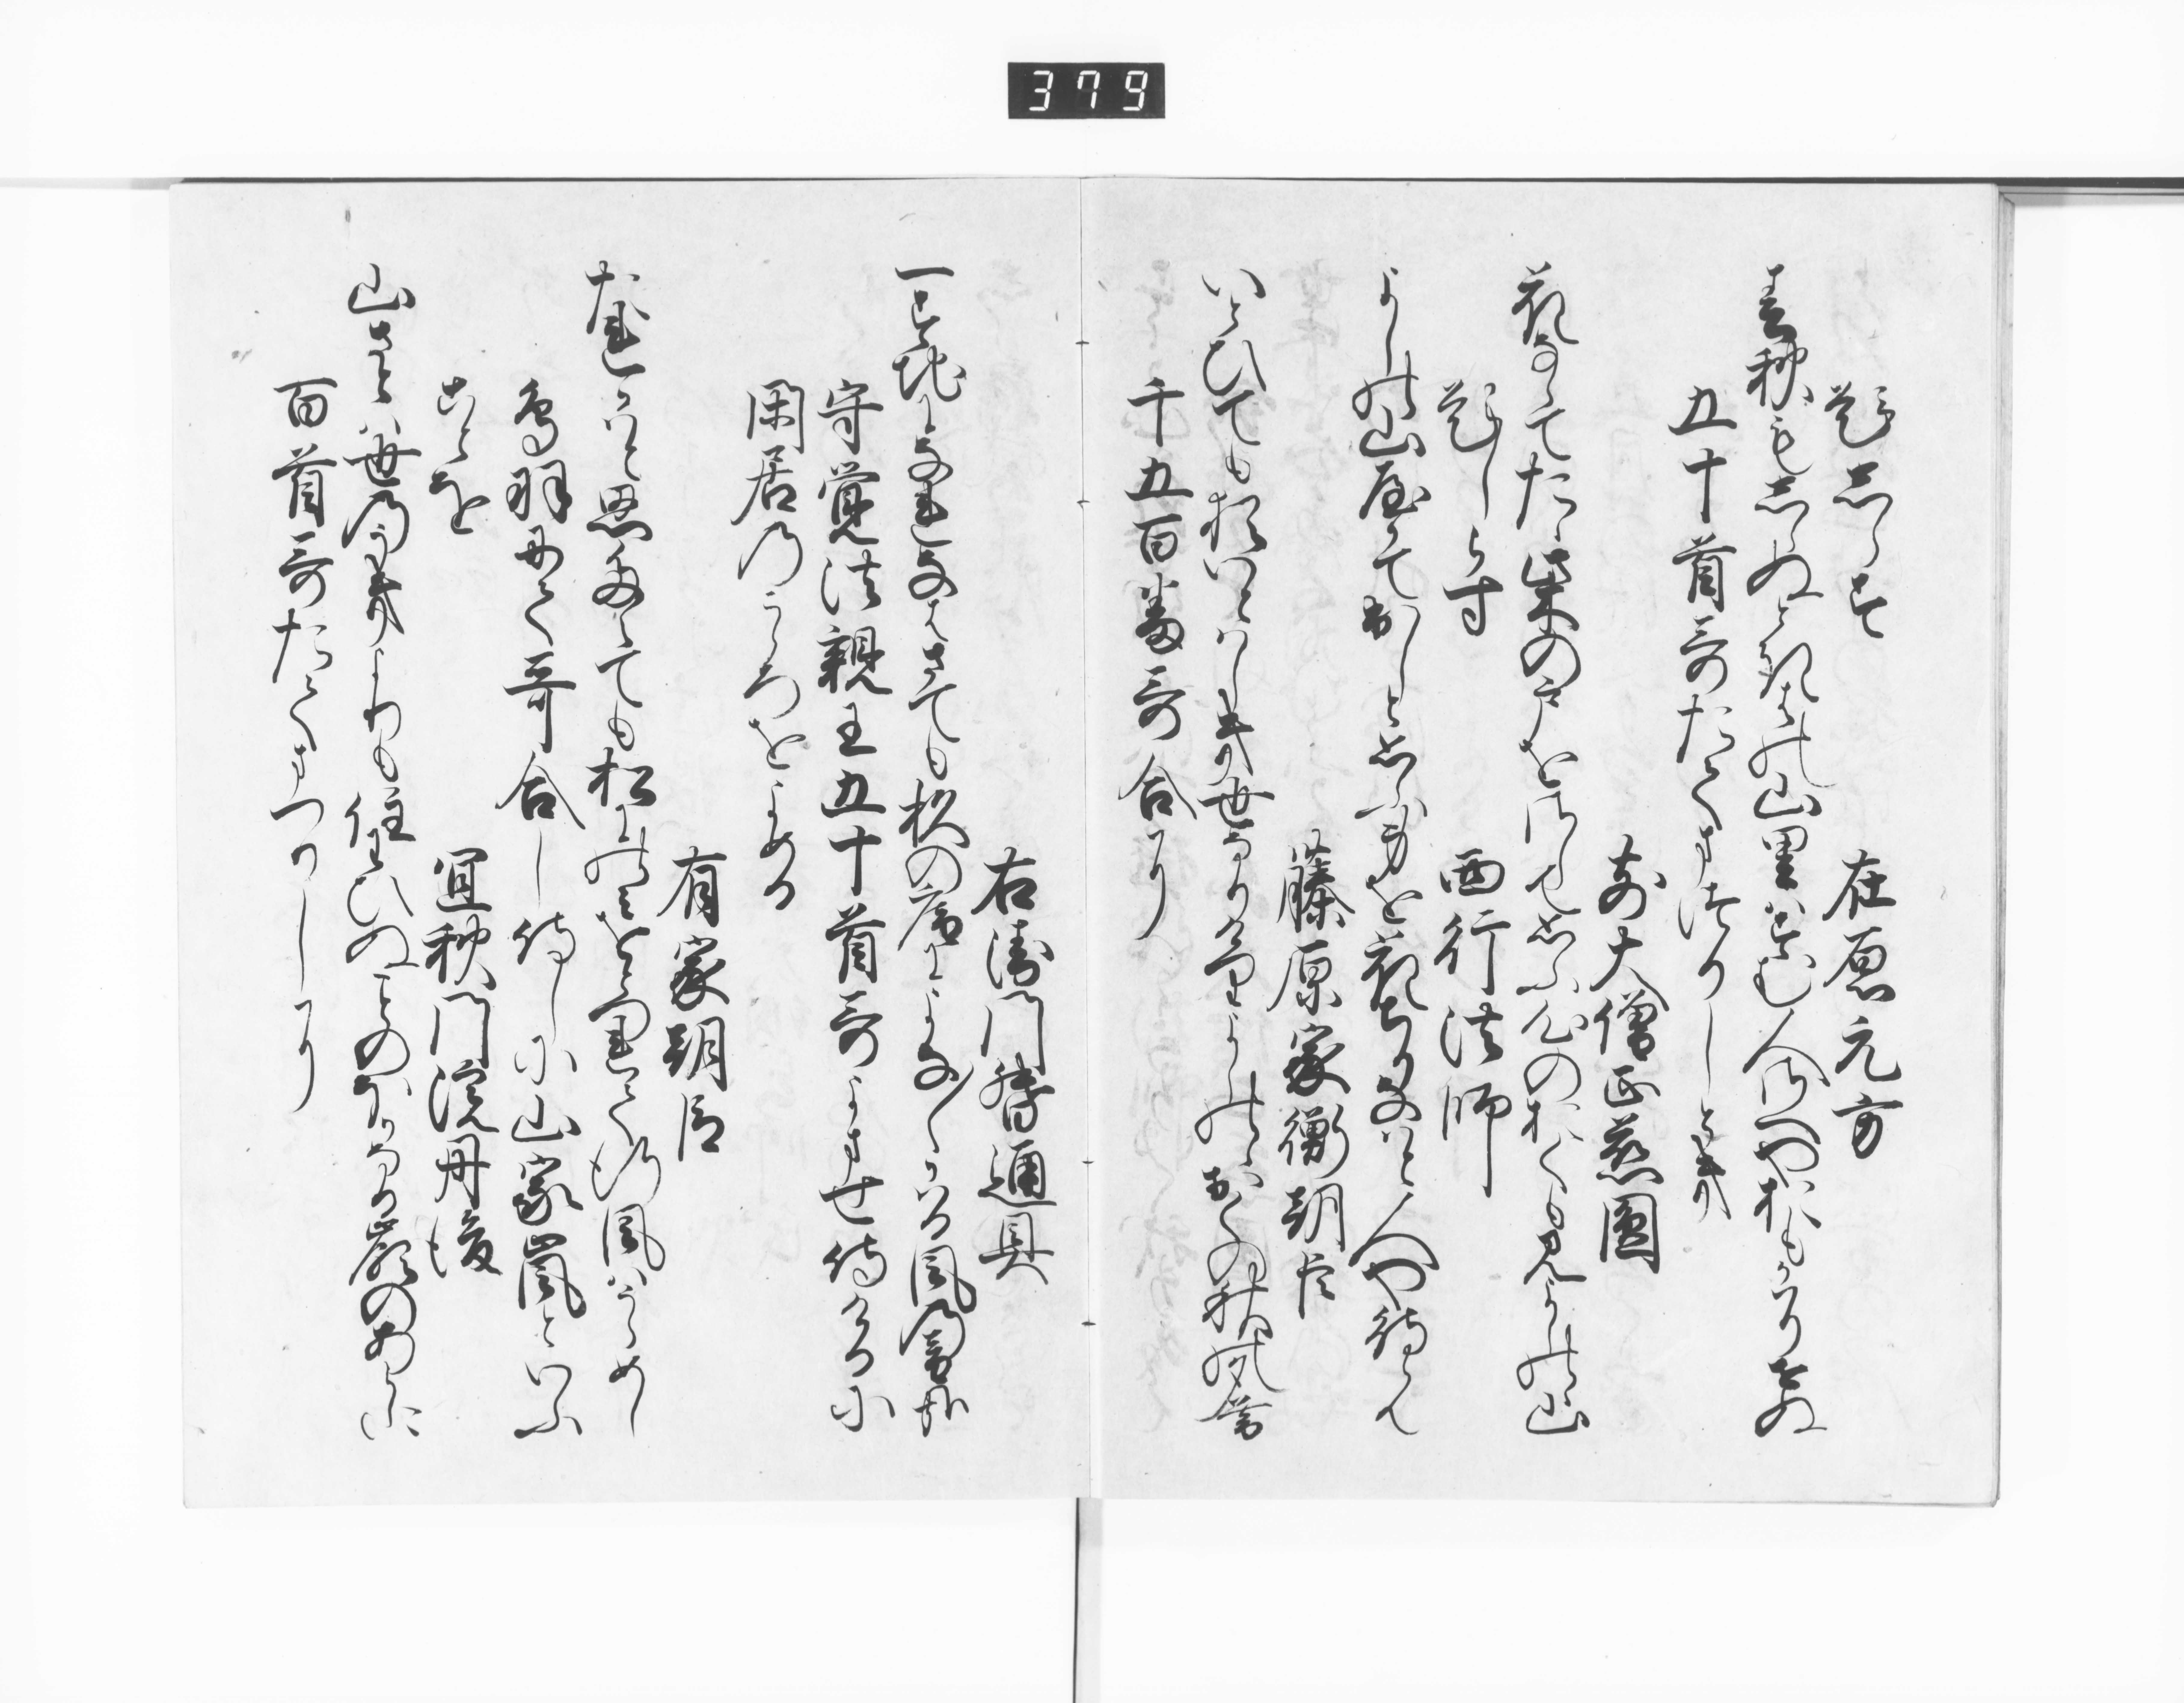 379
題しらす
在原元方
春秋もしらぬときはの山里はすむ人さへやおもかはりせぬ
五十首哥たてまつりしとき
前大僧正慈圓
花ならてたゝ柴の戸をさして思ふ心のおくもみよしの山
題しらす
西行法師
よしの山やかていてしと思ふ身を花ちりなはと人や待らん
藤原家衡朝臣
いとひても猶いとはしき世なりけりよしのゝおくの秋の夕暮
千五百番哥合に
右衛門督通具
一すちになれなはさても杦の庵によな／＼かはる風の音かな
守覚法親王五十首哥よませ侍けるに
閑居のこゝろをよめる
有家朝臣
たれかはと思たえても松にのみをとつれてゆく風はうらめし
鳥羽にて哥合し侍しに山家嵐といふ
ことを
宜秋門院丹後
山さとは世のうきよりも住わひぬことのほかなる嶺のあらしに
百首哥たてまつりしに